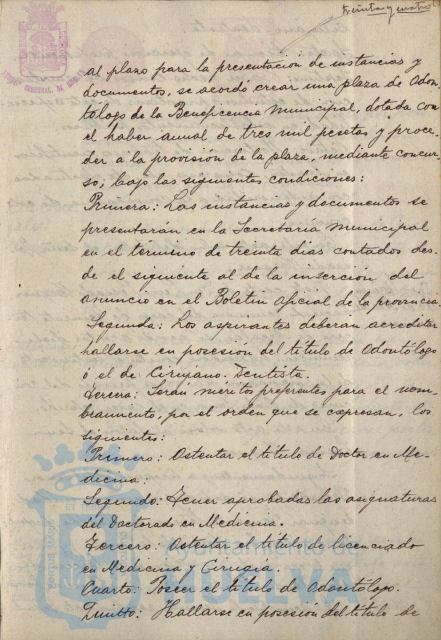 treinta y cuatro
al plazo para la presentación de instancias y
documentos, se acordó crear una plaza de Odon-
tólogo de la Beneficencia Municipal, dotada con
el haber anual de tres mil pesetas y proce-
der a la provisión de la plaza, mediante concur-
so, bajo las siguientes condiciones:
Primera: Las instancias y documentos se
presentarán en la Secretaría Municipal
en el término de treinta dias contados des-
de el siguiente al de la inserción del
anuncio en el Boletin Oficial de la provincia.
Segunda: Los aspirantes deberan acreditar
hallarse en posesión del titulo de Odontólogo
ó el de Cirujano-Dentista.
Tercera: Serán méritos preferentes para el nom-
braumento, por el orden que se expresan, los
siguientes:
Primero: Ostentar el titulo de Doctor en Me-
dicina:
Segundo: Tener aprobadas las asignaturas
del Doctorado en Medicina.
Tercero: Ostentar el titulo de licenciado
en Medicina y Cirugia.
Cuarto: Poseer el titulo de Odontólogo.
Quinto: Hallarse en posesión del titulo de
HUELVA